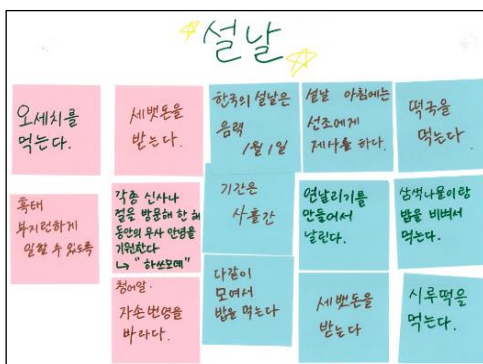 설날
오세치를
먹는다.
세뱃돈을
받는다.
한국의 설날은
음력
1월 1일
설날 아침에는
선조에게
제사를 하다.
떡국을
먹는다
흑태
부지런하게
일할 수 있도록
각종 신사나
절을 방문해 한 해
동안의 무사 안녕을
기원한다
↳ "하쓰모데"
기간은
사흘간
연날리기를
만들어서
날린다.
삼색나물이랑
밥을 비벼서
먹는다.
청어알.
자손번영을
바라다.
다같이
모여서
밥을 먹는다
세뱃돈을
받는다
시루떡을
먹는다.